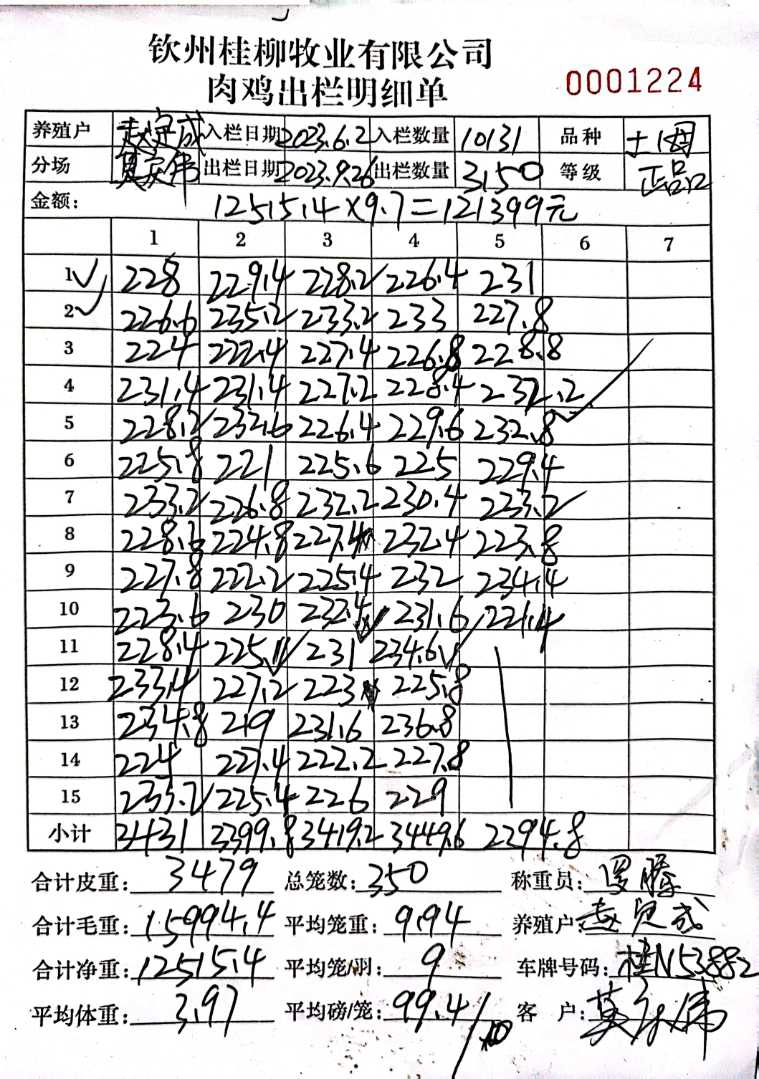 钦州桂柳牧业有限公司
肉鸡出栏明细单 0001224
养殖户 赵 成 入栏日期 2023.6.2 入栏数量 10131 品种 土
分场 伟 出栏日期 2023.9.26 出栏数量 3150 等级 正品
金额: 12515.4×9.7=121399元
1 2 3 4 5 6 7
1 228 229.4 228.2 226.4 231
2 226.6 235.2 233.2 233 227.8
3 224 222.4 227.4 226.8 228.8
4 231.4 231.4 227.2 228.4 232.2
5 228.2 232.6 226.4 229.6 232.8
6 225.8 221 225.6 225 229.4
7 233.2 226.8 232.2 230.4 223.2
8 228.6 224.8 227.4 232.4 223.8
9 227.8 222.2 225.4 232 234.4
10 223.6 230 232.4 231.6 221.4
11 228.4 225.4 231 234.6
12 233.4 227.2 223 225.8
13 234.8 219 231.6 236.8
14 224 227.4 222.2 227.8
15 233.2 225.4 226 229
小计 3431 3399.8 3419.2 3449.6 2294.8
合计皮重: 3479 总笼数: 350 称重员: 罗腾
合计毛重: 15994.4 平均笼重: 9.94 养殖户: 赵 成
合计净重: 12515.4 平均笼/羽: 9 车牌号码: 桂N53882
平均体重: 3.97 平均磅/笼: 99.4/10 客 户: 莫 伟